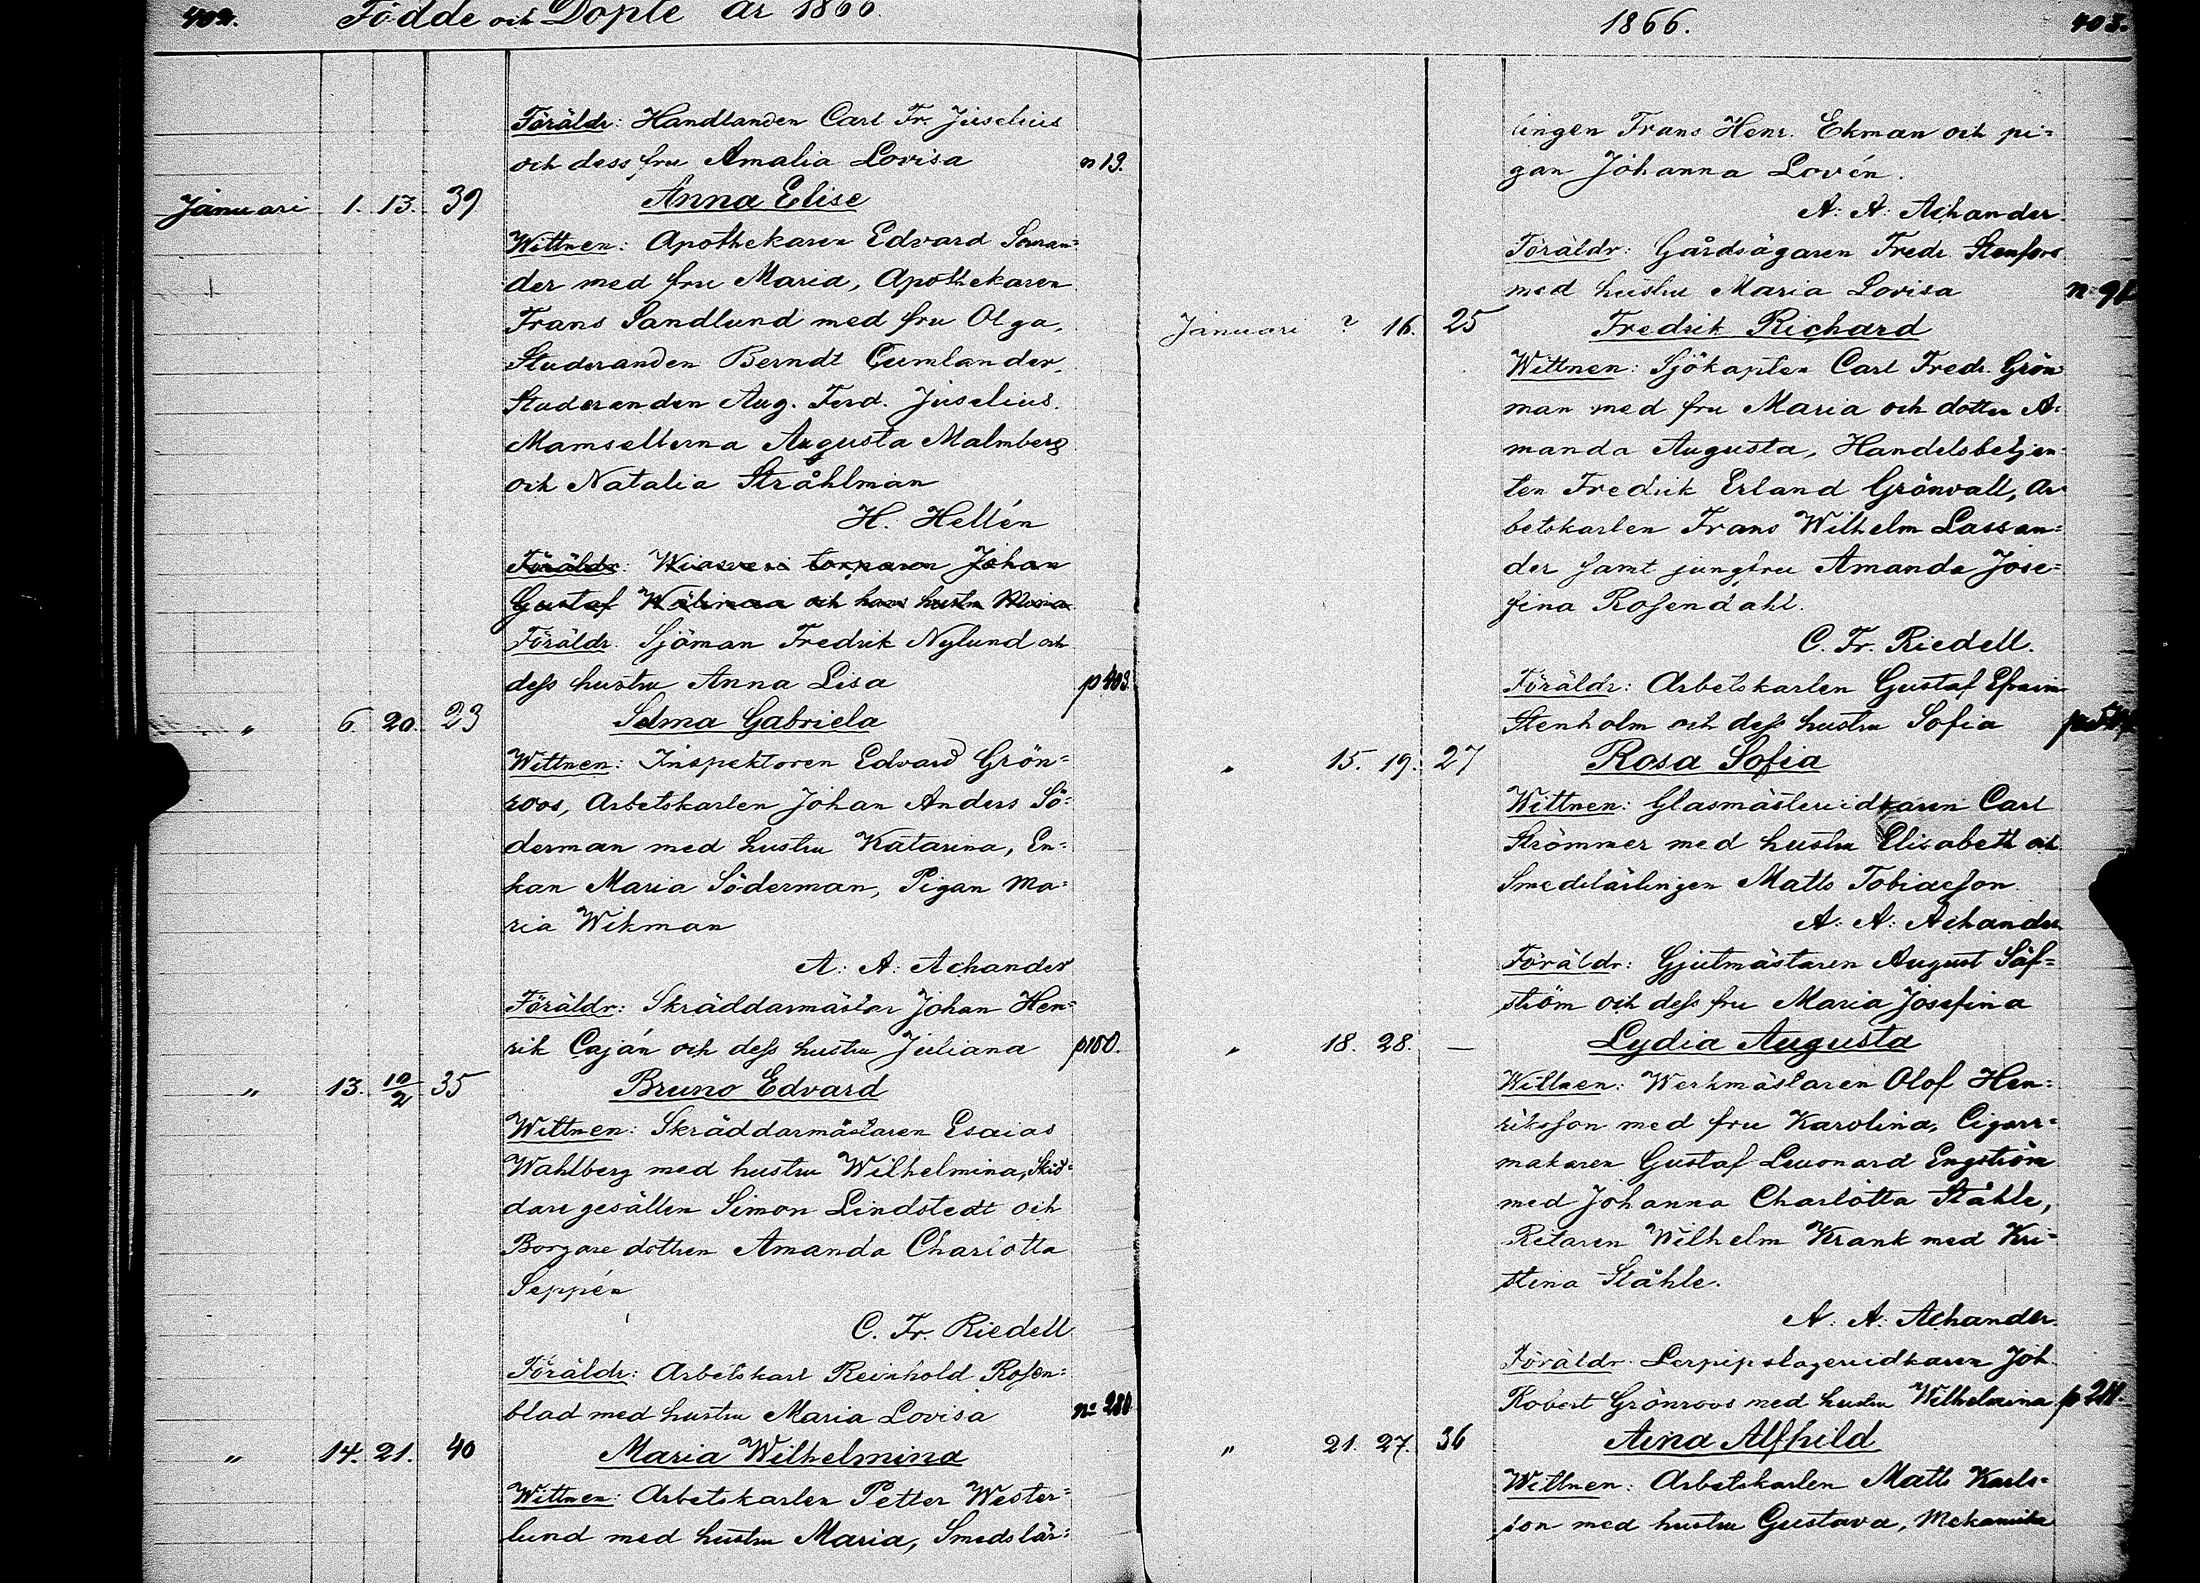 402. Födde och Döpte År 1866.
Föräldr: Handlanden Carl Fr. Juselius
och dess fru Amalia Lovisa n 13.
Januari 1. 13. 39 Anna Elise
Wittnen: Apothekaren Edvard Souran=
der med fru Maria, Apothekaren
Frans Sandlund med fru Olga,
Studeranden Berndt Cumlander,
Studeranden Aug. Ferd. Juselius.
Mamsellerna Augusta Malmberg
och Natalia Stråhlman
H. Hellén
Föräldr: torparen Johan
Gustaf och hans hustru Maria
Föräldr. Sjöman Fredrik Nylund och
dess hustru Anna Lisa p 403.
" 6. 20. 23 Selma Gabriela
Wittnen: Inspektoren Edvard Grön=
roos, Arbetskarlen Johan Anders Sö=
derman med hustru Katarina, En=
kan Maria Söderman, Pigan Ma=
ria Wikman
A. A. Achander
Föräldr: Skräddarmästar Johan Hen=
rik Caján och dess hustru Juliana p 150.
" 13. 10/2 35 Bruno Edvard
Wittnen: Skräddarmästaren Esaias
Wahlberg med hustru Wilhelmina, Skrä=
dare gesällen Simon Lindstedt och
Borgare dottren Amanda Charlotta
Seppén
C. Fr. Riedell
Föräldr: Arbetskarl Reinhold Rosen=
blad med hustru Maria Lovisa n: 280
" 14. 21. 40 Maria Wilhelmina
Wittnen: Arbetskarlen Petter Wester=
lund med hustru Maria, Smedslär=
1866. 403.
lingen Frans Henr. Ekman och pi=
gan Johanna Lovén.
A. A. Achander.
Föräldr: Gårdsägaren Fredr. Stenfors
med hustru Maria Lovisa
Januari ? 16. 25 Fredrik Richard
Wittnen: Sjökapten Carl Fredr. Grön
man med fru Maria och dotter A=
manda Augusta, Handelsbetjen=
ten Fredrik Erland Grönvall, Ar=
betskarlen Frans Wilhelm Lassan=
der samt jungfru Amanda Jose=
fina Rosendahl.
C. Fr. Riedell.
Föräldr: Arbetskarlen Gustaf Efraim
Stenholm och dess hustru Sofia
" 15. 19. 27 Rosa Sofia
Wittnen: Glasmästeriidkaren Carl
Strömmer med hustru Elisabeth och
Smedslärlingen Matts Tobiasson.
A. A. Achander
Föräldr: Gjutmästaren August Säf=
ström och dess fru Maria Josefina
" 18. 28. — Lydia Augusta
Wittnen: Werkmästaren Olof Hen=
riksson med fru Karolina, Cigarr=
makaren Gustaf Leuonard Engström
med Johanna Charlotta Ståhle,
Ritaren Wilhelm Krank med Kri=
stina Ståhle.
A. A. Achander.
Föräldr: Lerpipslageriidkaren Joh.
Robert Grönroos med hustru Wilhelmina
" 21. 27. 36 Aina Alfhild
Wittnen: Arbetskarlen Matts Karls=
son med hustru Gustava,